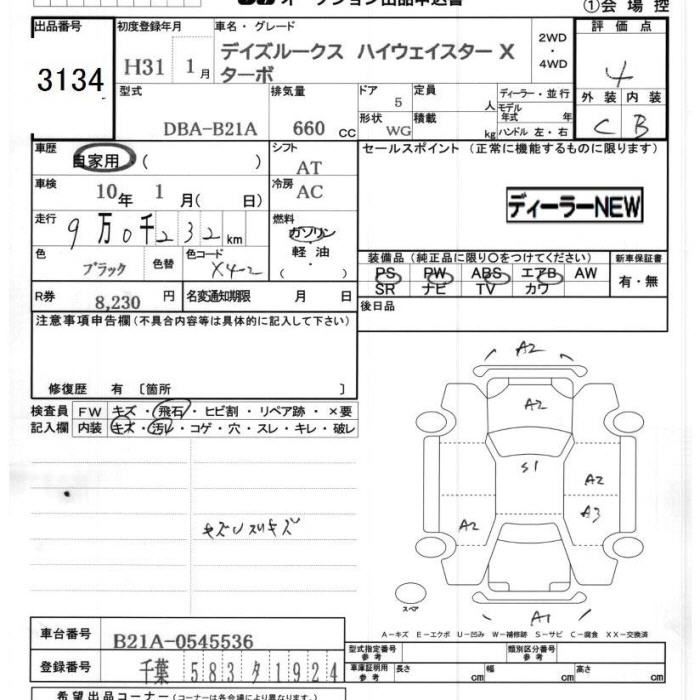 オークション出品申込書
①会場控
出品番号
3134
初度登録年月
H31 1月
車名・グレード
デイズルークス ハイウェイスター X
ターボ
2WD
・
4WD
評価点
4
外装 内装
C B
型式
DBA-B21A
排気量
660 cc
ドア
5
形状
WG
定員
人
積載
kg
ディーラー・並行
モデル
年式 年
ハンドル 左・右
車歴
自家用 ( )
シフト
AT
セールスポイント (正常に機能するものに限ります)
ディーラーNEW
車検
10年 1月(日)
冷房
AC
走行
9万0千232km
燃料
ガソリン
・
軽油
・
( )
色
ブラック
色替
色コード
X42
装備品 (純正品に限り〇をつけてください)
PS PW ABS エアB AW
SR ナビ TV カワ
新車保証書
有・無
R券
8,230 円
名変通知期限 月 日
後日品
注意事項申告欄 (不具合内容等は具体的に記入して下さい)
修復歴 有 [箇所 ]
検査員
記入欄
FW キズ・飛石・ヒビ割・リペア跡・×要
内装 キズ・汚レ・コゲ・穴・スレ・キレ・破レ
A2
A2
S1
A2
A3
A2
A1
スペア
A－キズ E－エクボ U－凹み W－補修跡 S－サビ C－腐食 XX－交換済
車台番号
B21A-0545536
登録番号
千葉 583 タ 1924
型式指定番号
参考
類別区分番号
参考
車庫証明用
参考
長さ cm
幅 cm
高さ cm
希望出品コーナー (コーナーは各会場により異なります)